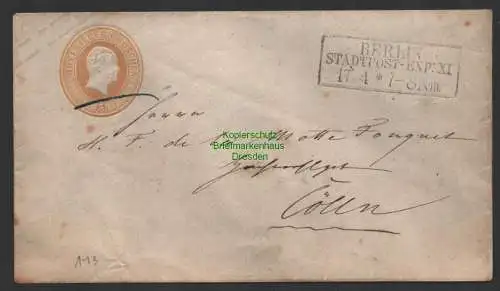 BERLIN
STADTPOST-EXP: XI
17 4 * 7-8 N
Herrn
H. F. de la Motte Fouquet
Cölln
Kopierschutz
Briefmarkenhaus
Dresden
A13